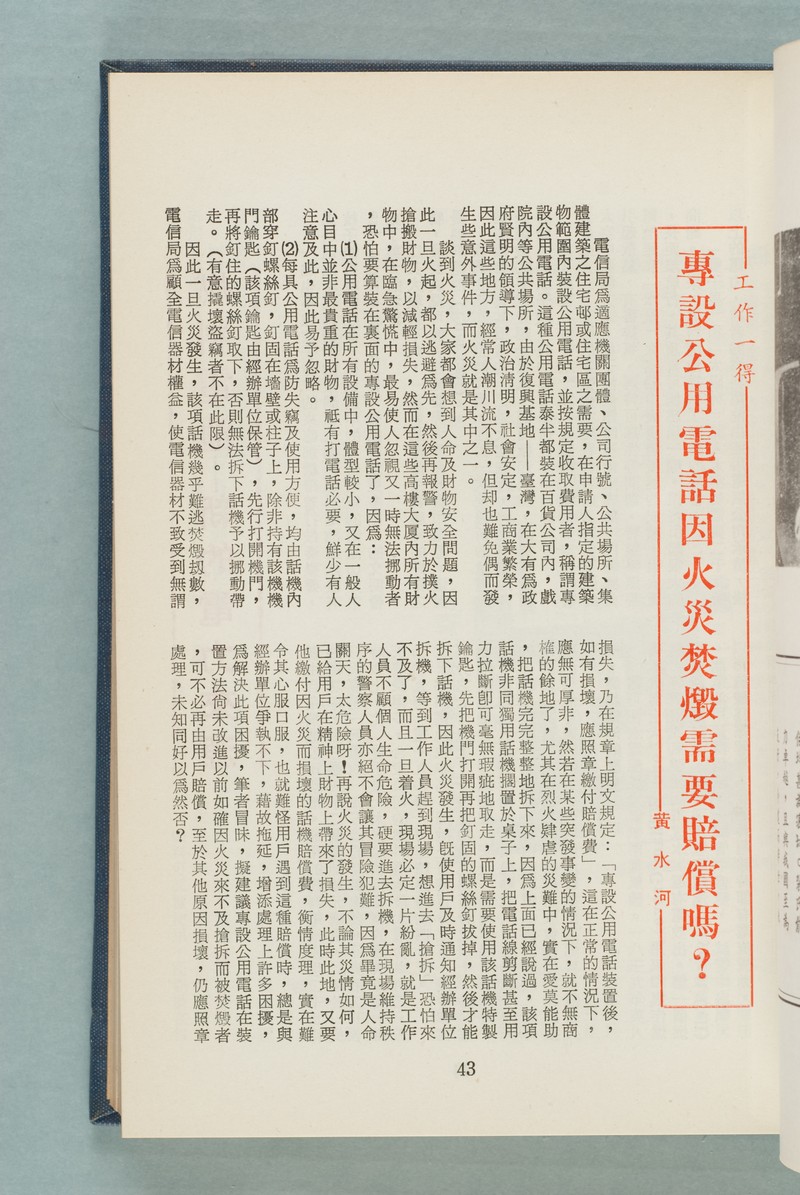 工作一得
專設公用電話因火災焚燬需要賠償嗎？
黃水河
電信局爲適應機關團體、公司行號、公共場所、集
體建築之住宅邨或住宅區之需要，在申請人指定的建築
物範圍內裝設公用電話，並按規定收取費用者，稱謂專
設公用電話。這種公用電話泰半都裝在百貨公司內，戲
院內等公共場所，由於復興基地——臺灣，在大有爲政
府賢明的領導下，政治淸明，社會安定，工商業繁榮，
因此這些地方，經常人潮川流不息，但却也難免偶而發
生些意外事件，而火災就是其中之一。
談到火災，大家都會想到人命及財物安全問題，因
此一旦火起，都以逃避爲先，然後再報警，致力於撲火
搶搬財物，以減輕損失，然而在這些高樓大厦內所有財
物中，在臨急驚慌中，最易使人忽視又一時無法挪動者
，恐怕要算裝在裏面的專設公用電話了，因爲：
⑴公用電話在所有設備中，體型較小，又在一般人
心目中並非最貴重的財物，祇有打電話必要，鮮少有人
注意及此，因此易予忽略。
⑵每具公用電話爲防失竊及使用方便，均由話機內
部穿釘螺絲釘，釘固在墻壁或柱子上，除非持有該機機
門鑰匙（該項鑰匙由經辦單位保管），先行打開機門，
再將釘住的螺絲釘取下，否則無法拆下話機予以挪動帶
走。（有意撬壞盜竊者不在此限）。
因此一旦火災發生，該項話機幾乎難逃焚燬刼數，
電信局爲顧全電信器材權益，使電信器材不致受到無謂
損失，乃在規章上明文規定：「專設公用電話裝置後，
如有損壞，應照章繳付賠償費」，這在正常的情況下，
應無可厚非，然若在某些突發事變的情況下，就不無商
榷的餘地了，尤其在烈火肆虐的災難中，實在愛莫能助
，把話機完完整整地拆下來，因爲上面已經說過，該項
話機非同獨用話機擱置於桌子上，把電話線剪斷甚至用
力拉斷卽可毫無瑕疵地取走，而是需要使用該話機特製
鑰匙，先把機門打開再把釘固的螺絲釘拔掉，然後才能
拆下話機，因此火災發生，旣使用戶及時通知經辦單位
拆機，等到工作人員趕到現場，想進去「搶拆」恐怕來
不及了，而且一旦着火，現場必定一片紛亂，就是工作
人員不顧個人生命危險，硬要進去拆機，在現場維持秩
序的警察人員亦絕不會讓其冒險犯難，因爲畢竟是人命
關天，太危險呀！再說火災的發生，不論其災情如何，
已給用戶在精神上財物上帶來了損失，此時此地，又要
他繳付因火災而損壞的話機賠償費，衡情度理，實在難
令其心服口服，也就難怪用戶遇到這種賠償時，總是與
經辦單位爭執不下，藉故拖延，增添處理上許多困擾，
爲解決此項困擾，筆者冒昧，擬建議專設公用電話在裝
置方法尙未改進以前如確因火災來不及搶拆而被焚燬者
，可不必再由用戶賠償，至於其他原因損壞，仍應照章
處理，未知同好以爲然否？
43